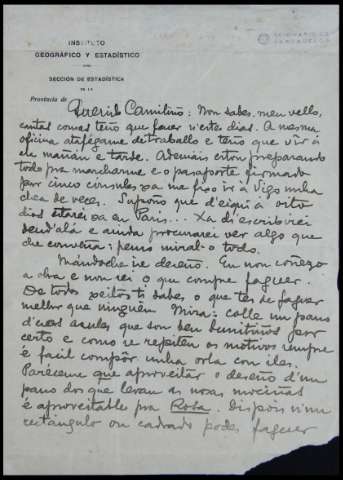 INSTITUTO
GEOGRÁFICO Y ESTADÍSTICO
SECCIÓN DE ESTADÍSTICA
DE LA
Provincia de
Querido Camiliño: Non sabes, meu vello,
cantas cousas teño que facer n'estes dias. A mesma
oficina atafegame de traballo e teño que vir á
ela mañán e tarde. Ademáis estou preparando
todo pra marcharme e o pasaporte firmado
por cinco cónsules xa me fixo ir á Vigo unha
chea de veces. Supoño que d'eiquí a oito
dias estarei xa en Paris... Xa di escribirei
dend'alá e ainda procurarei ver algo que
che conveña; penso miral-o todo.
Mándoche ise deseño. Eu non coñezo
a obra e non sei o que compre faguer.
De todos xeitos ti sabes o que tes de faguer
mellor que ninguén. Mira: colle un pano
d'esos azules que son ben bonitiños por
certo e como se repiten os motivos sempre
é facil compôr unha orla con iles.
Paréceme que aproveitar o deseño d'un
pano dos que levan as nosas mociñas
é aproveitable pra Rosa. Dispois n'un
rectángulo ou cadrado podes faguer